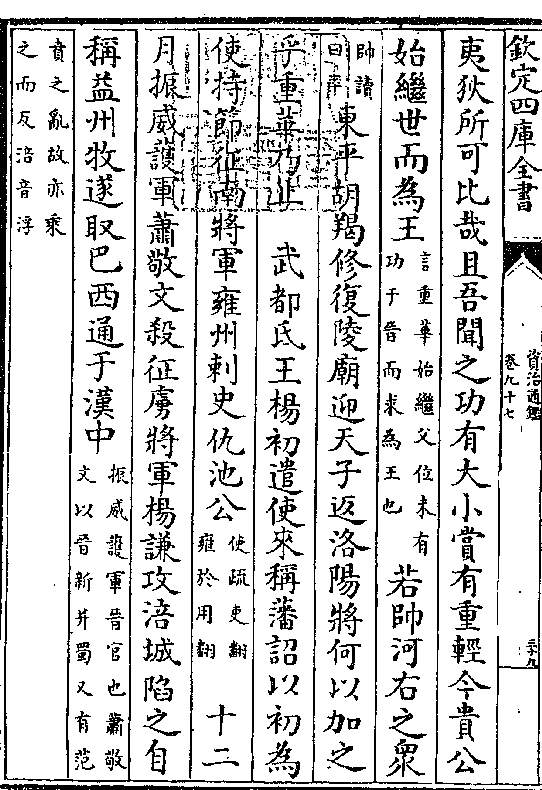 欽定四庫全書
資治通鑑
卷九十七
夷狄所可比哉且吾聞之功有大小賞有重輕今貴公
始繼世而為王
言重華始繼父位未有
功于晉而求為王也
若帥河右之衆
帥讀
曰率
東平胡羯修復陵廟迎天子返洛陽將何以加之
乎重華乃止 武都氐王楊初遣使來稱藩詔以初為
使持節征南將軍雍州刺史仇池公
使疏吏翻
雍於用翻
十二
月振威護軍蕭敬文殺征虜將軍楊謙攻涪城陷之自
稱益州牧遂取巴西通于漢中
振威護軍晉官也蕭敬
文以晉新并蜀又有范
賁之亂故亦乘
之而反涪音浮